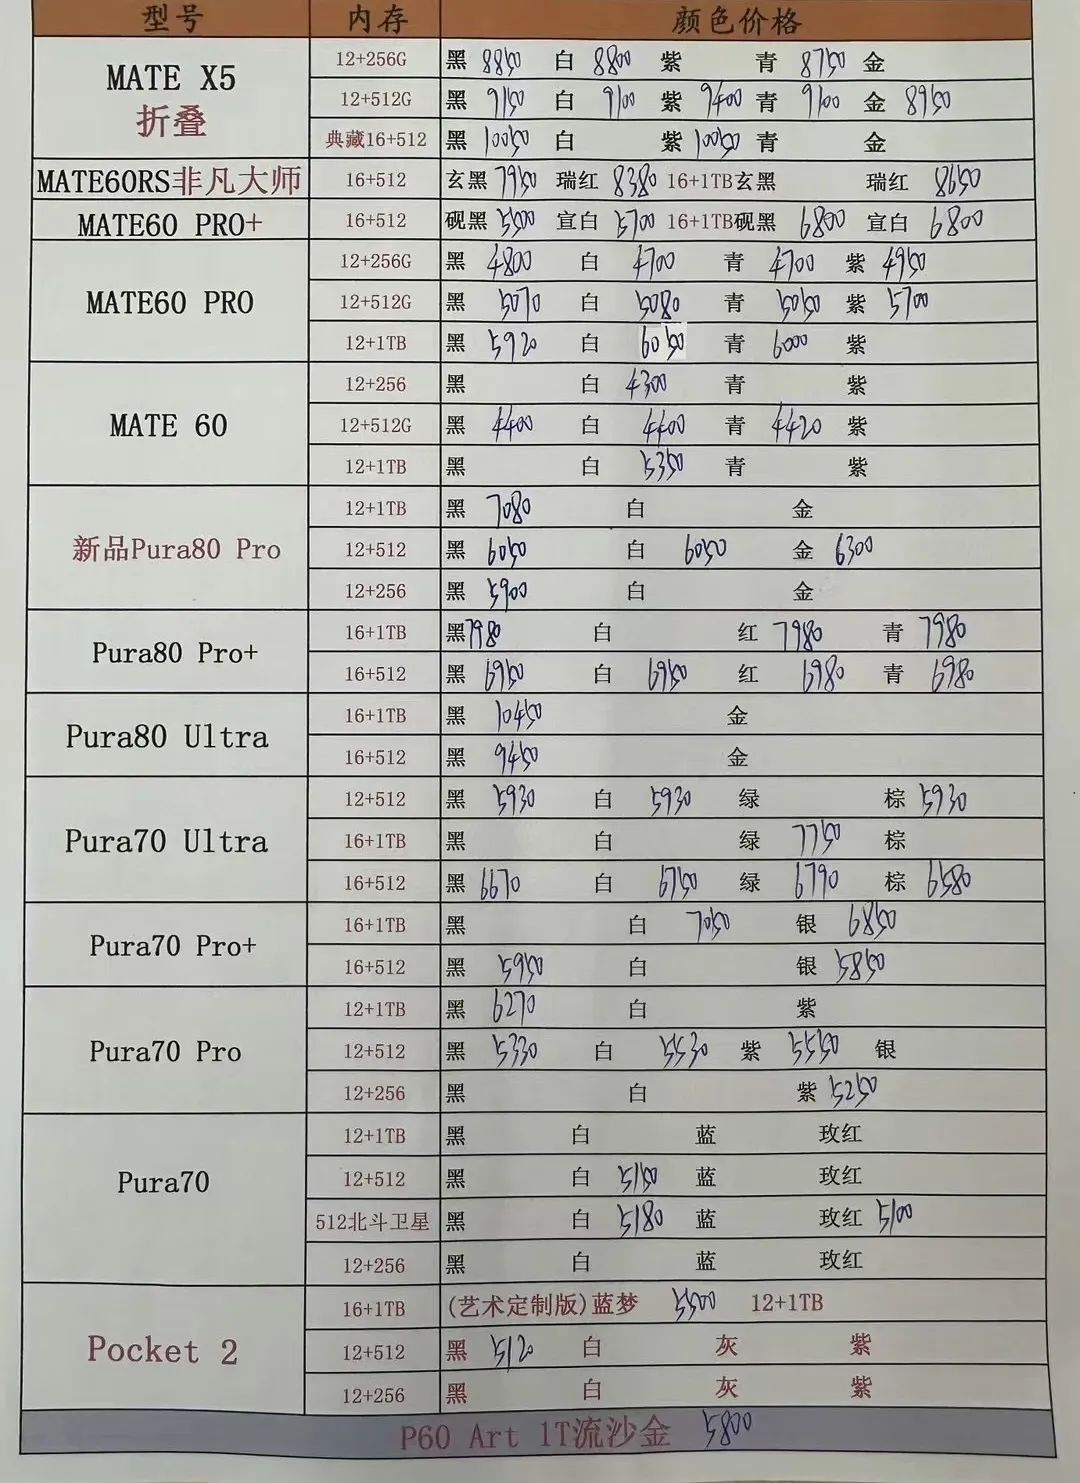 型号 内存 颜色价格
MATE X5 折叠 12+256G 黑 8850 白 8800 紫 青 8750 金
12+512G 黑 9150 白 9100 紫 9400 青 9100 金 8950
典藏16+512 黑 10050 白 紫 10050 青 金
MATE60RS非凡大师 16+512 玄黑 7950 瑞红 8380 16+1TB玄黑 瑞红 8650
MATE60 PRO+ 16+512 砚黑 5500 宣白 5700 16+1TB砚黑 6800 宣白 6800
MATE60 PRO 12+256G 黑 4800 白 4700 青 4700 紫 4950
12+512G 黑 5070 白 5080 青 5050 紫 5700
12+1TB 黑 5920 白 6050 青 6000 紫
MATE 60 12+256 黑 白 4300 青 紫
12+512G 黑 4400 白 4400 青 4420 紫
12+1TB 黑 白 5350 青 紫
新品Pura80 Pro 12+1TB 黑 7080 白 金
12+512 黑 6050 白 6050 金 6300
12+256 黑 5900 白 金
Pura80 Pro+ 16+1TB 黑 7980 白 红 7980 青 7980
16+512 黑 6950 白 6950 红 6980 青 6980
Pura80 Ultra 16+1TB 黑 10450 金
16+512 黑 9450 金
Pura70 Ultra 12+512 黑 5930 白 5930 绿 棕 5930
16+1TB 黑 白 绿 7750 棕
16+512 黑 6670 白 6750 绿 6790 棕 6580
Pura70 Pro+ 16+1TB 黑 白 7050 银 6850
16+512 黑 5950 白 银 5850
Pura70 Pro 12+1TB 黑 6270 白 紫
12+512 黑 5330 白 5530 紫 5550 银
12+256 黑 白 紫 5250
Pura70 12+1TB 黑 白 蓝 玫红
12+512 黑 白 5150 蓝 玫红
512北斗卫星 黑 白 5180 蓝 玫红 5100
12+256 黑 白 蓝 玫红
Pocket 2 16+1TB (艺术定制版)蓝梦 5500 12+1TB
12+512 黑 5120 白 灰 紫
12+256 黑 白 灰 紫
P60 Art 1T流沙金 5800